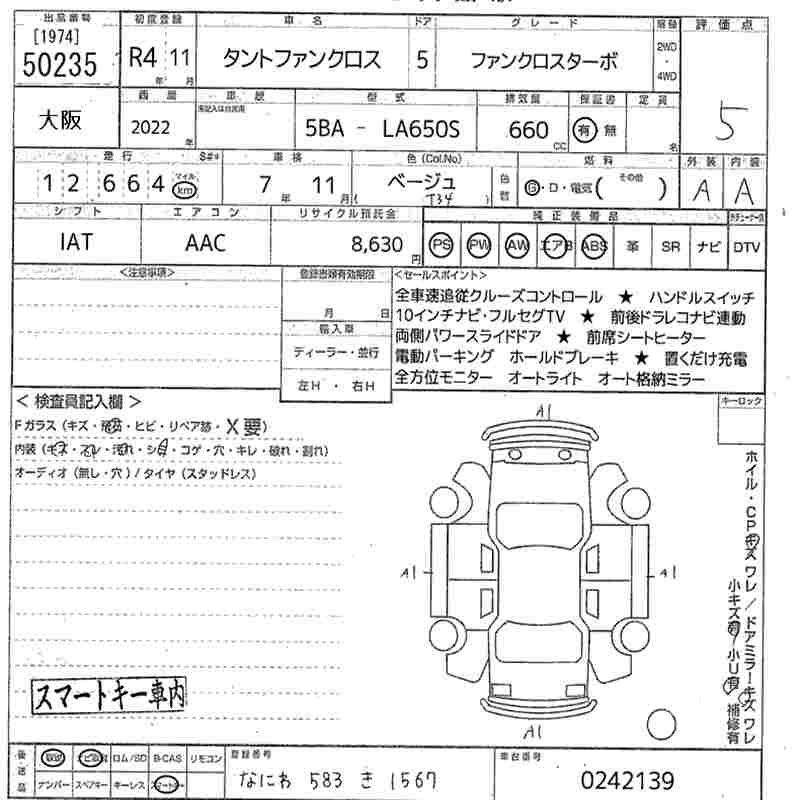 出品番号 初度登録 車名 ドア グレード 駆動 評価点
[1974]
50235 R4年 11月 タントファンクロス 5 ファンクロスターボ 2WD・4WD 5
西暦 車歴 型式 排気量 保証書 定員
大阪 2022年 未記入は自家用 5BA - LA650S 660CC 有 無 名
走行 S#* 車検 色 (Col.No) 燃料 外装 内装
12664 マイル km 7年 11月 ベージュ (T34) 色替 G・D・電気 (その他) A A
シフト エアコン リサイクル預託金 純正装備品 外チューナー済
IAT AAC 8,630円 PS PW AW エアB ABS 革 SR ナビ DTV
<注意事項> 登録書類有効期限 <セールスポイント>
月 日
全車速追従クルーズコントロール ★ ハンドルスイッチ
10インチナビ・フルセグTV ★ 前後ドラレコナビ連動
輸入車
両側パワースライドドア ★ 前席シートヒーター
ディーラー・並行
電動パーキング ホールドブレーキ ★ 置くだけ充電
左H ・ 右H
全方位モニター オートライト オート格納ミラー
<検査員記入欄>
キーロック
Fガラス (キズ・飛石・ヒビ・リペア跡・X要)
内装 (キズ・スレ・汚れ・シミ・コゲ・穴・キレ・破れ・割れ)
オーディオ (無し・穴) / タイヤ (スタッドレス)
A1
A1
A1
A1
ホイル・CPキズ ワレ / ドアミラーキズ ワレ
小キズ有 小U有 補修有
スマートキー車内
後送品 取説 ナビ取説 ロム/SD B-CAS リモコン
ナンバー スペアキー キーレス スマートキー
登録番号
なにわ 583 き 1567
車台番号
0242139